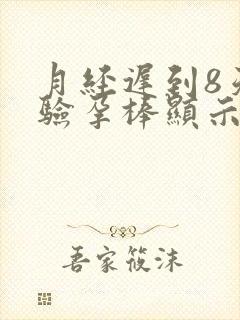 月經遲到8
驗孕棒顯示
吾家筱沫